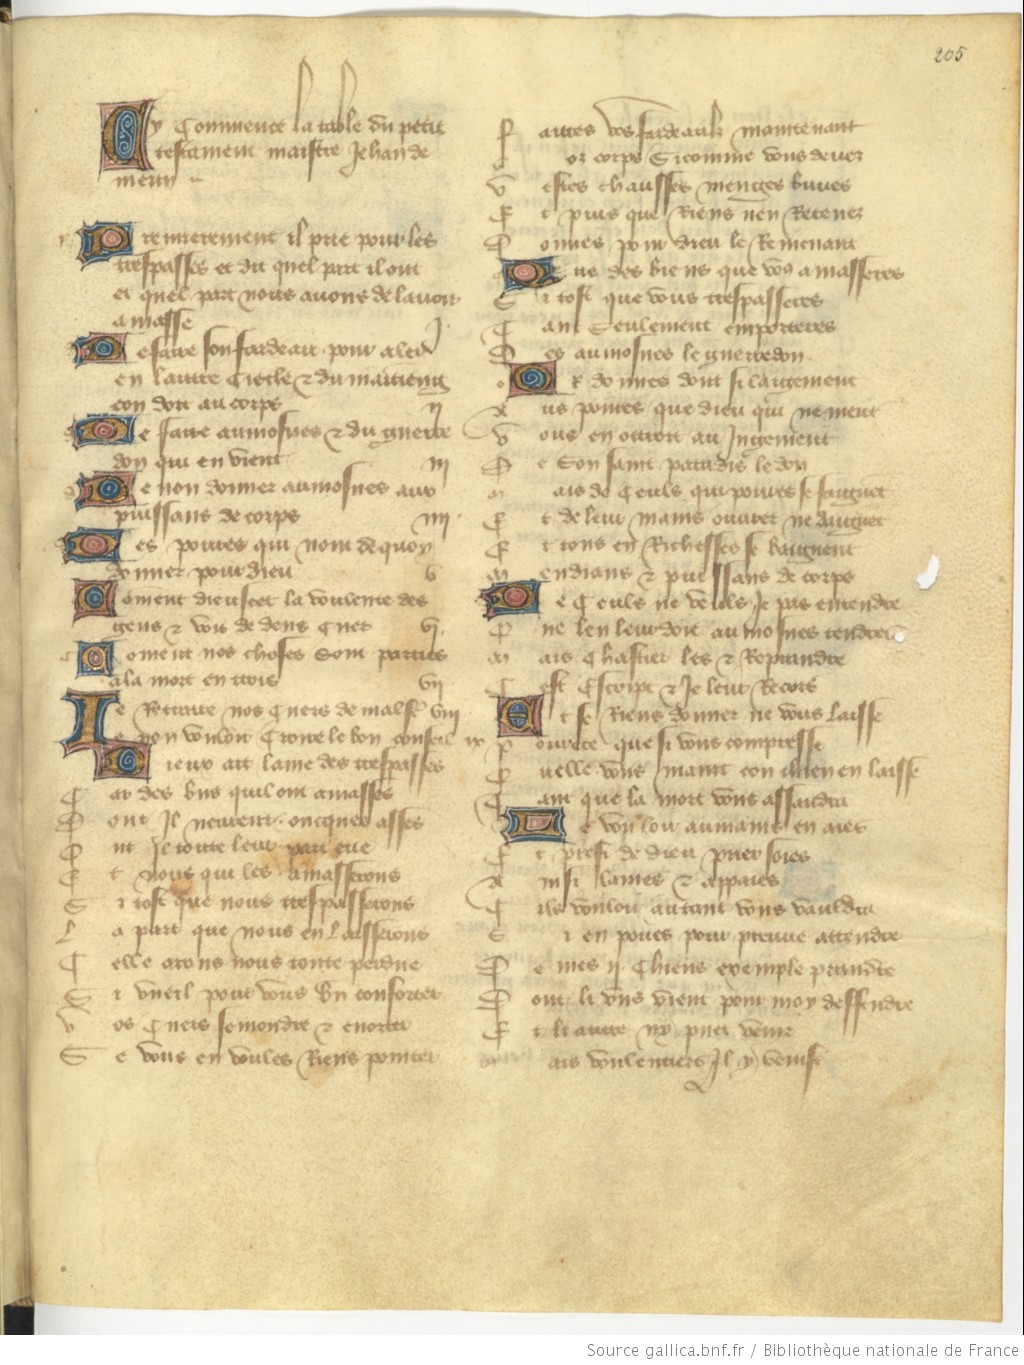 205
Cy Commence la table du petit
testament maistre Jehan de
meun
Premierement il prie pour les
trespasses et dit quel part il ont
et quel part nous auons de lauoir
amasse
De faire son fardeau pour aler
en lautre Siecle & du
con doit au corps ij
De faire aumosnes & du guerre
don qui en vient iij
De non donner aumosnes aux
puissans de corps iiij
Des poures qui nont de quoy
donner pour dieu v
Coment dieu scet la voulente des
gens & voit de dens Cuer vj
Coment nos choses Sont parties
a la mort en trois vij
De Retraire nos Cuers de mal viij
De non vouloir Croire le bon conseil ix
Dieux ait lame des trespasses
Car des biens quil ont amasses
Dont Jl neurent oncques asses
ont Je toute leur part eue
Et nous qui les amasserons
Si tost que nous trespasserons
La part que nous en laisserons
Celle arons nous toute perdue
Si vueil pour vous bn conforter
Vos Cuers semondre & enorter
Se vous en voules Riens porter
Faittes vos fardeaulx maintenant
or corps Sicomme vous deuez
Vestes chausses menges buues
Et puis que Riens nen Retenez
Donnes pour dieu le Remenant
Que des biens que vous amasseres
Si tost que vous trespasseres
Tant Seulement emporteres
Des aumosnes le guerredon
Or donnes dont si largement
Aus poures que dieu qui ne ment
Vous en ottroit au Jugement
De Son saint paradis le don
Mais de Ceuls qui poures se faignet
Et de leur mains ouurer ne daignet
Et tous en Richesses se baignent
Mendians & puissans de corps
De Ceuls ne veuls Je pas entendre
ne len leur doie aumosnes tendre
Mais Chastier les & Reprandre
Cest Escript & Je leur Recors
Et se Riens donner ne vous laisse
Pourete que si vous compresse
Quelle vous maint con chien en laisse
Tant que la mort vous assaudra
De vouloir aumains en aiez
Et prest de dieu prier soies
Ainsi lames & appaies
Cils vouloir autant vous vauldra
Si en poues pour preuue attendre
De mes ij Chiens exemple prandre
Dont li uns vient pour moy deffendre
Et li autre ny puet venir
Mais voulentiers Jl y venist